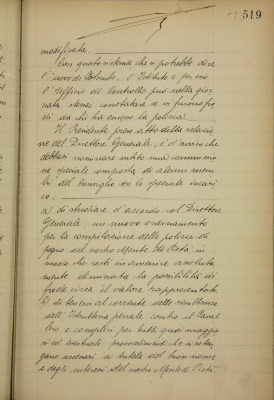 519
modificata.
Con questo sistema che si potrebbe dire
l'uovo di Colombo, l'Istituto e per esso
l'Ufficio di Controllo può nella gior-
nata stessa constatare se vi furono fro
di da chi ha emesso la polizza.
Il Presidente preso atto della relazio
ne del Direttore Generale, è d'avviso che
debbasi nominare subito una commissio
ne speciale composta di alcuni mem
bri del Consiglio con lo speciale incari
co:
a) di studiare d'accordo col Direttore
Generale un nuovo ordinamento
per la compilazione delle polizze di
pegno del nostro Monte di Pietà in
modo che resti in avvenire assoluta
mente eliminata la possibilità di
frode circa il valore rappresentato.
b) di tenersi al corrente delle risultanze
dell'Istruttoria penale contro il
leo e complici per tutti quei maggio
ri ed eventuali provvedimenti che si riten
gano necessari a tutela del buon nome
e degli interessi del nostro Monte di Pietà.